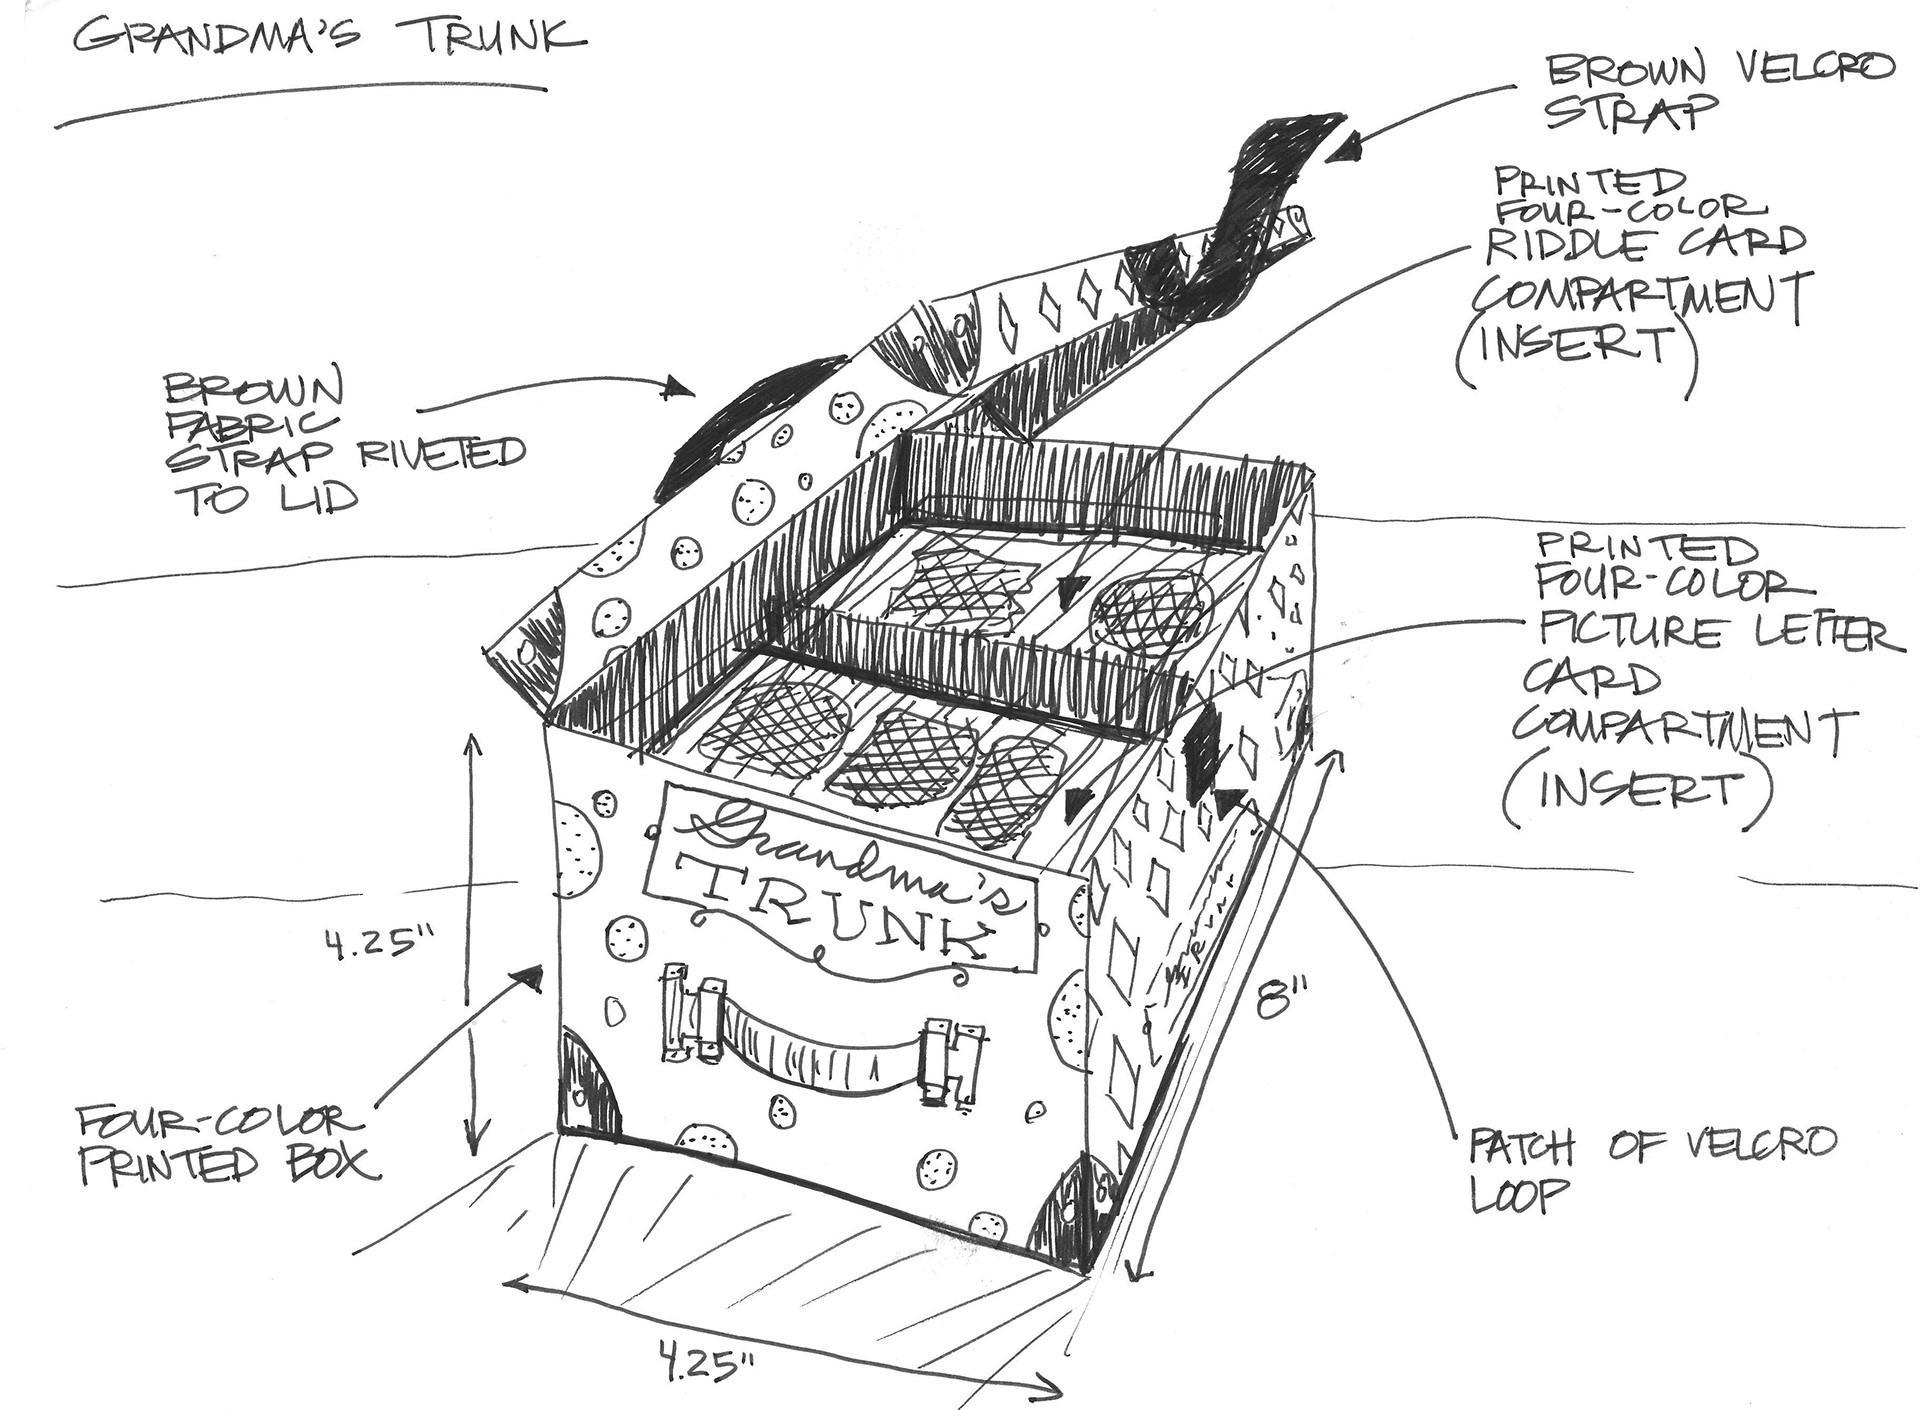 GRANDMA'S TRUNK
BROWN VELCRO
STRAP
PRINTED
FOUR-COLOR
RIDDLE CARD
COMPARTMENT
(INSERT)
BROWN
FABRIC
STRAP RIVETED
TO LID
PRINTED
FOUR-COLOR
PICTURE LETTER
CARD
COMPARTMENT
(INSERT)
Grandma's
TRUNK
4.25"
8"
FOUR-COLOR
PRINTED BOX
PATCH OF VELCRO
LOOP
4.25"